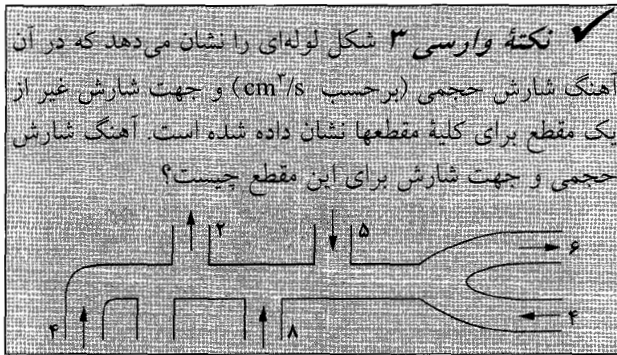 ✔ نکتهٔ وارسی ۳ شکل لوله‌ای را نشان می‌دهد که در آن
آهنگ شارش حجمی (برحسب cm³/s) و جهت شارش غیر از
یک مقطع برای کلیهٔ مقطعها نشان داده شده است. آهنگ شارش
حجمی و جهت شارش برای این مقطع چیست؟
۲
۵
۶
۴
۸
۴